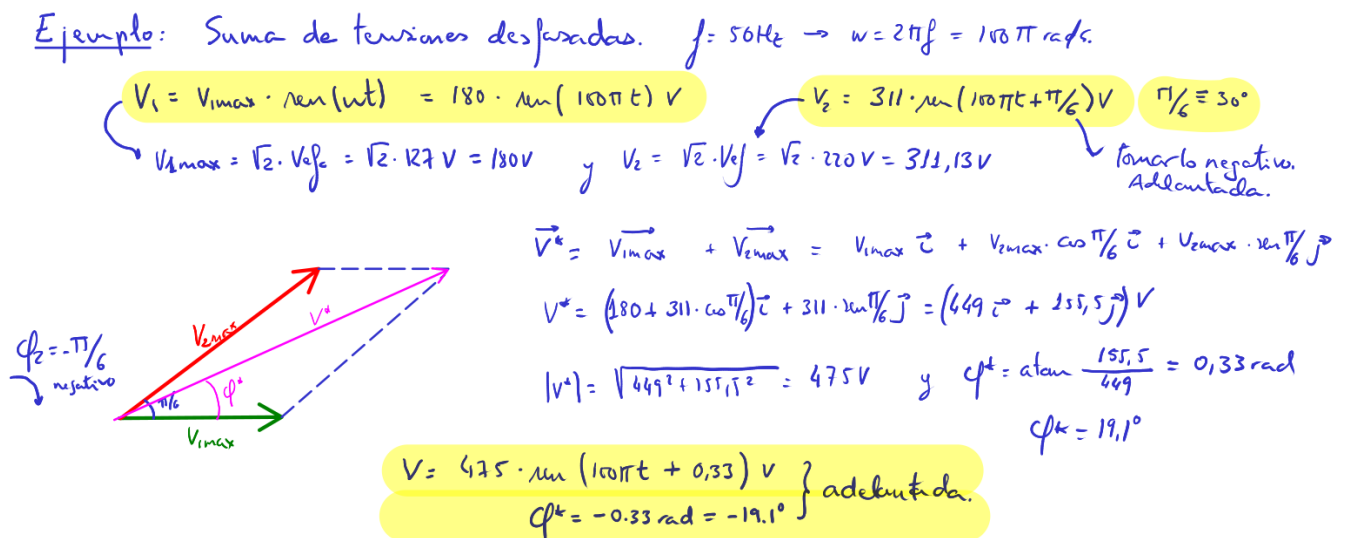 Ejemplo: Suma de tensiones desfasadas. f= 50Hz → w = 2πf = 100π rad/s.
V₁ = V₁max · sen(wt) = 180 · sen(100πt) V
V₂ = 311 · sen(100πt + π/6) V
π/6 ≡ 30°
V₁max = √2 · Vefc = √2 · 127 V = 180V y V₂ = √2 · Vef = √2 · 220 V = 311,13 V
tomarlo negativo.
Adelantada.
V⃗* = V₁max⃗ + V₂max⃗ = V₁max i⃗ + V₂max · cos π/6 i⃗ + V₂max · sen π/6 j⃗
V* = (180 + 311 · cos π/6) i⃗ + 311 · sen π/6 j⃗ = (449 i⃗ + 155,5 j⃗) V
|V*| = √(449² + 155,5²) = 475V y φ* = atan 155,5/449 = 0,33 rad
φ* = 19,1°
V₂max
V*
φ₂ = -π/6
negativo
π/6
φ*
V₁max
V = 475 · sen (100πt + 0,33) V
φ* = -0.33 rad = -19.1°
} adelantada.